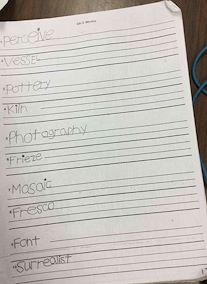 •Perceive
•Vessel
•Pottery
•Kiln
•Photography
•Frieze
•Mosaic
•Fresco
•Font
•Surrealist